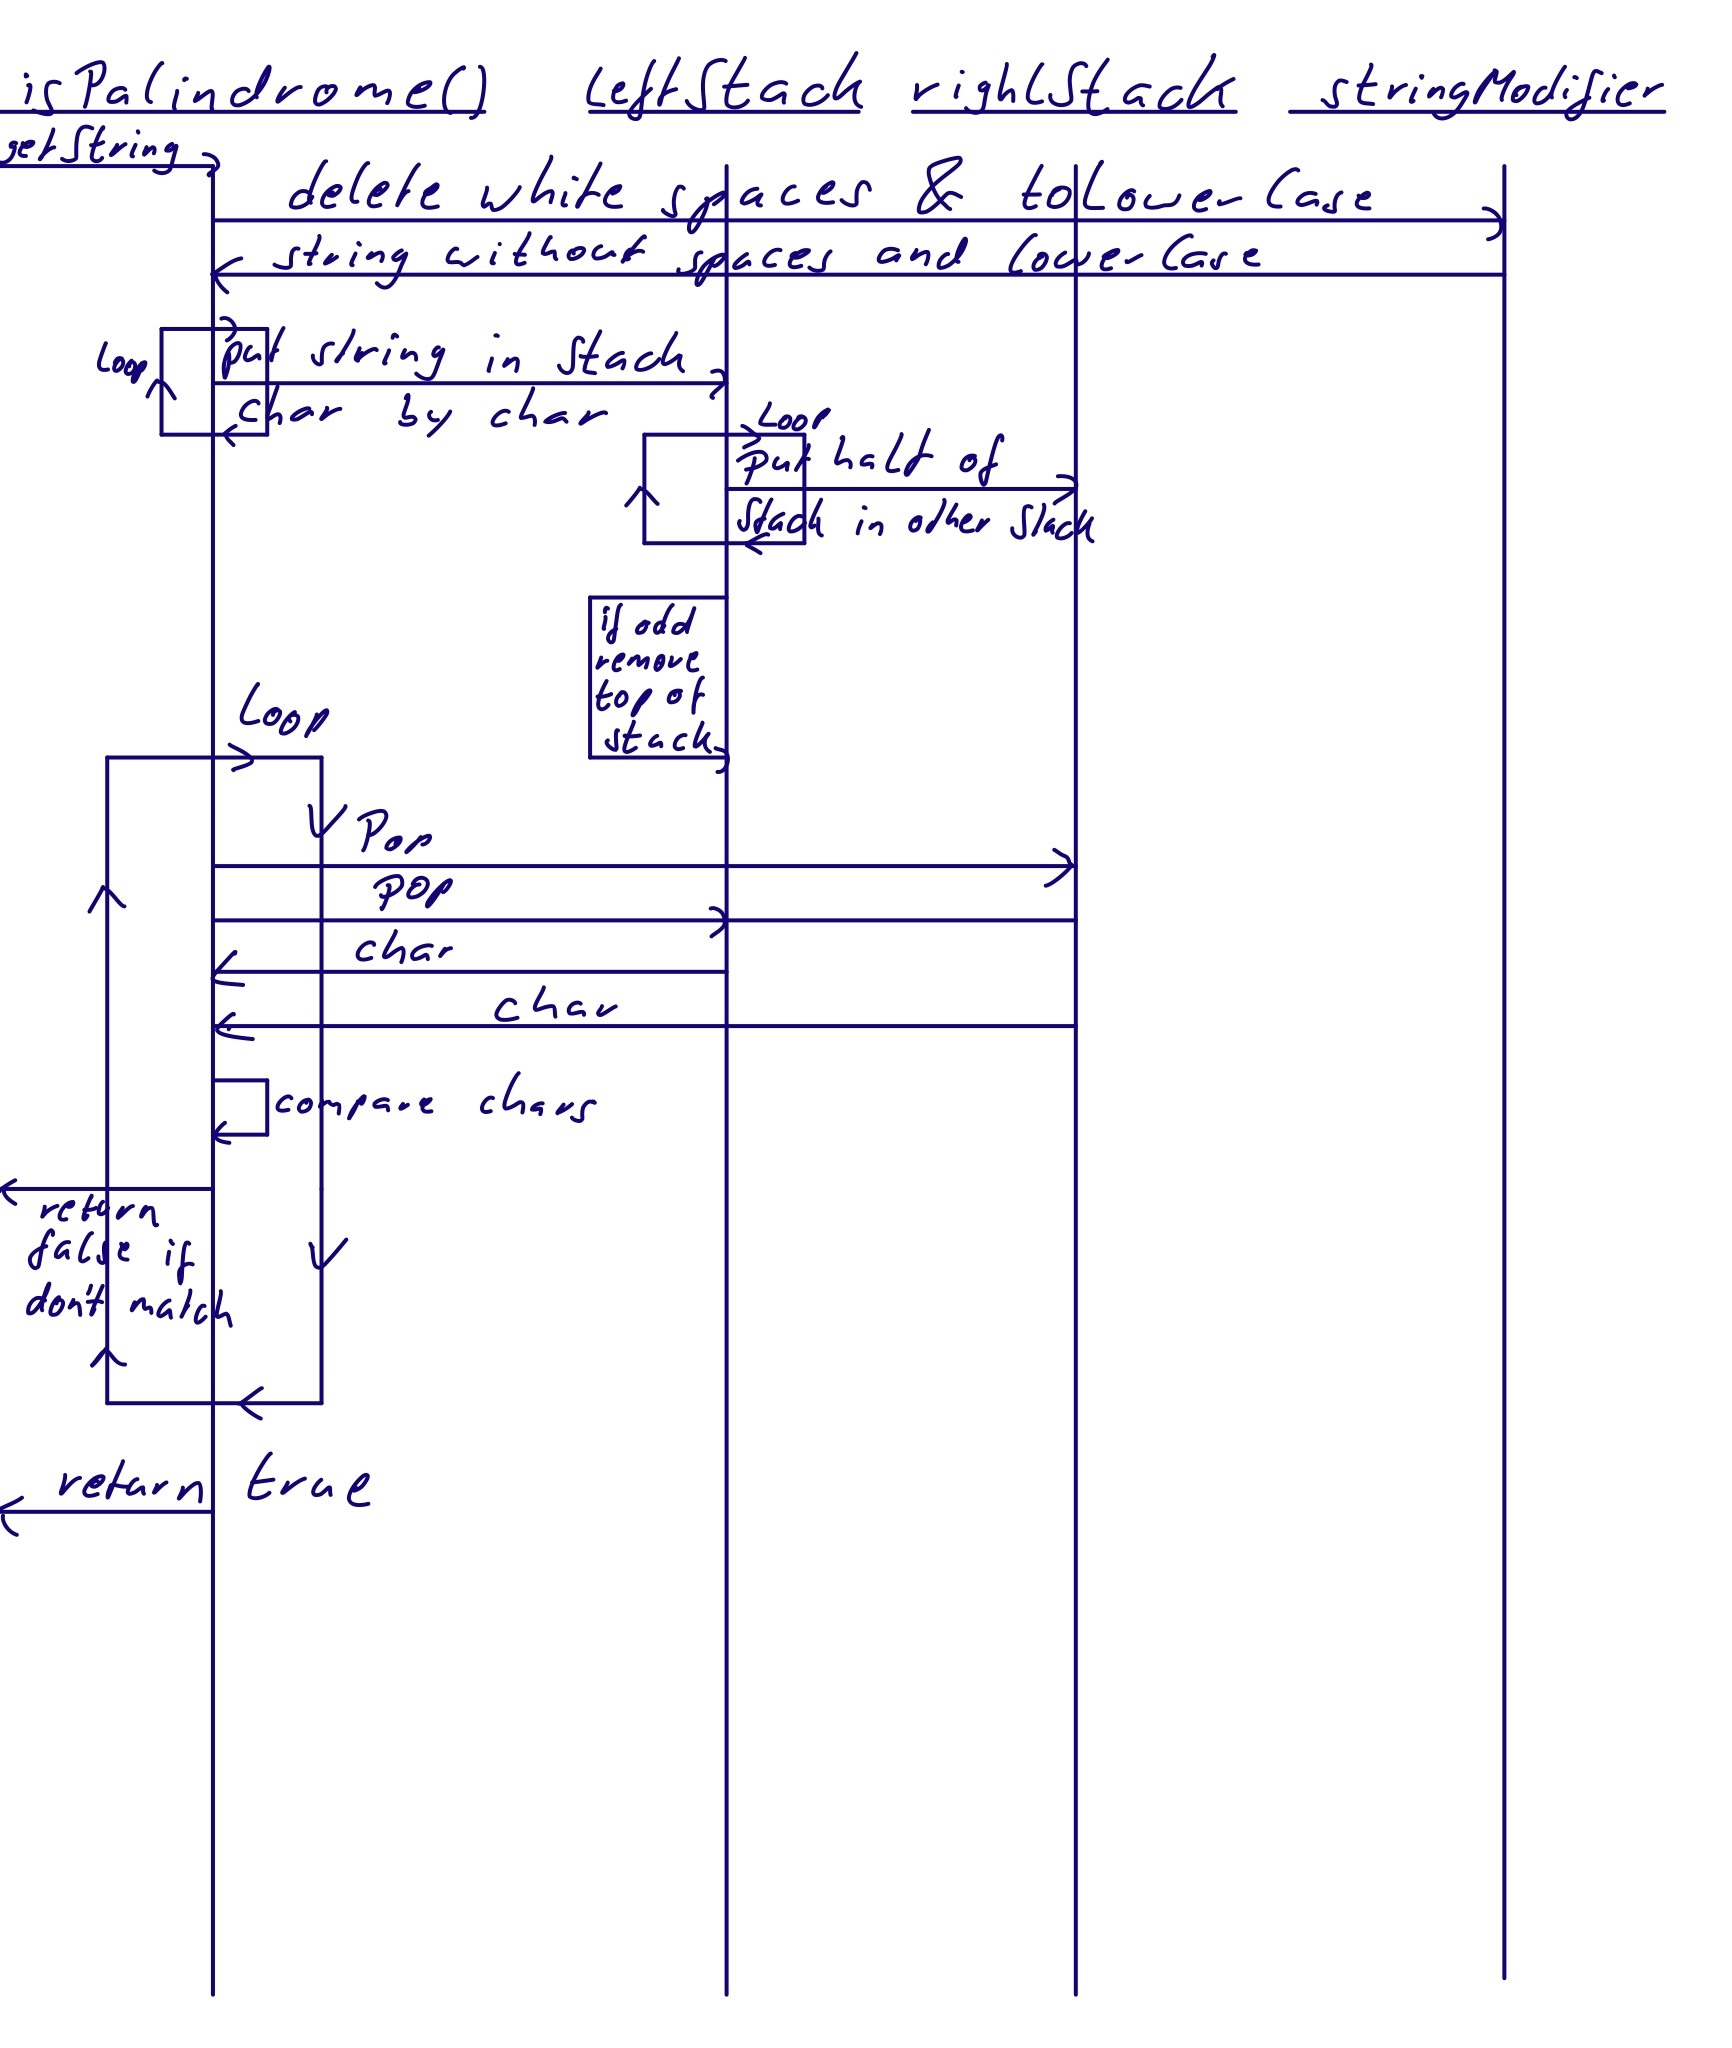 isPalindrome() LeftStack rightStack stringModifier
getString
delete white spaces & toLowerCase
string without spaces and lowerCase
Loop
put string in stack
char by char
Loop
put half of
stack in other stack
if odd
remove
top of
stack
Loop
Pop
pop
char
char
compare chars
return
false if
don't match
return true